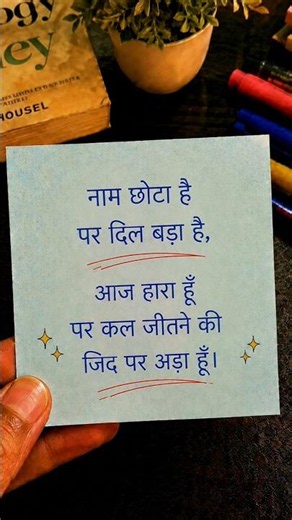 ogy
ey
HOUSEL
नाम छोटा है
पर दिल बड़ा है,
आज हारा हूँ
पर कल जीतने की
जिद पर अड़ा हूँ।